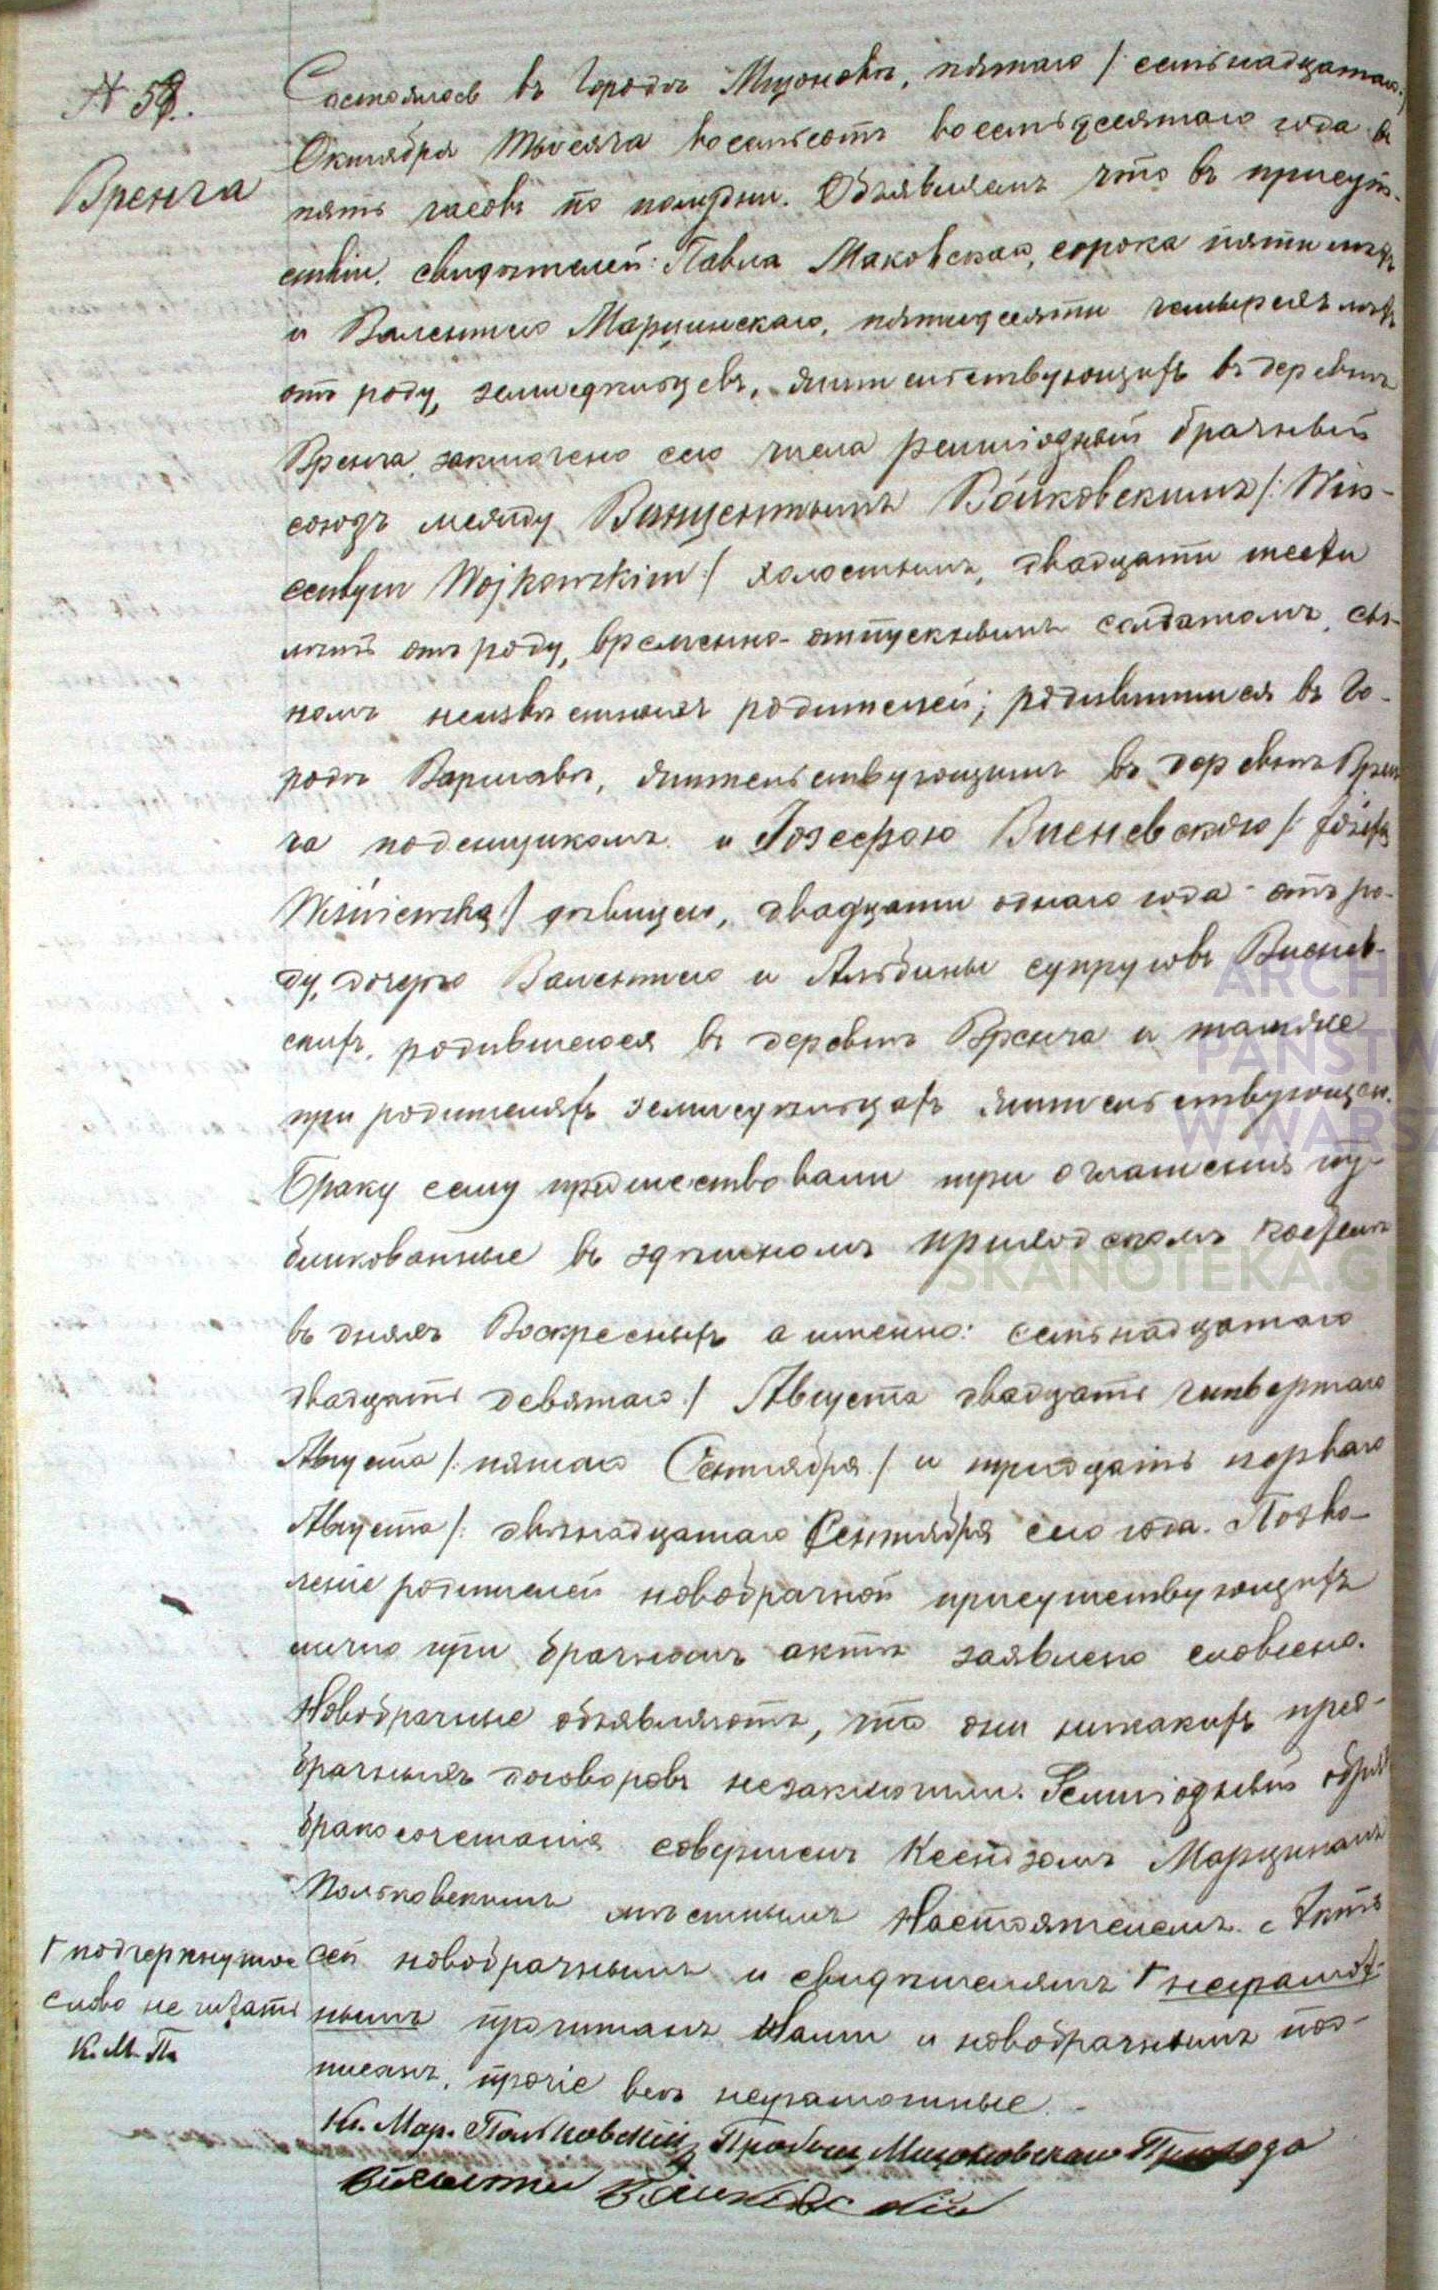 № 58.
Вренча
Состоялось въ городѣ Мщоновѣ, пятаго /: семьнадцатаго :/
Октября тысяча восемьсотъ восемьдесятаго года въ
пять часовъ по полудни. Объявляемъ что въ присут-
ствіи свидѣтелей: Павла Маковскаго, сорока пяти лѣтъ
и Валентего Марцинскаго, пятидесяти четырехъ лѣтъ
отъ роду, земледѣльцевъ, жительствующихъ въ деревнѣ
Вренча заключено сего числа религіозный брачный
союзъ между Винцентымъ Войковскимъ /: Win-
centym Wojkowskim :/ холостымъ, двадцати шести
лѣтъ отъ роду, временно-отпускнымъ солдатомъ, сы-
номъ неизвѣстныхъ родителей; родившимся въ го-
родѣ Варшавѣ, жительствующимъ въ деревнѣ Врен
ча поденщикомъ и Іозефою Висневскою /: Józefą
Wiśniewską :/ дѣвицею, двадцати одного года отъ ро-
ду, дочерью Валентего и Альбины супруговъ Виснев-
скихъ, родившеюся въ деревнѣ Вренча и тамже
при родителяхъ земледѣльцахъ жительствующею.
Браку сему предшествовали три оглашенія пу-
бликованные въ здѣшномъ приходскомъ костелѣ
въ дняхъ Воскресныхъ а именно: семьнадцатаго
двадцать девятаго :/ Августа двадцать четвертаго
Августа /: пятаго Сентября :/ и тридцать перваго
Августа /: двѣнадцатаго Сентября сего года. Позво-
леніе родителей новобрачной присутствующихъ
лично при брачномъ актѣ заявлено словесно.
Новобрачные объявляютъ, что они никакихъ пред-
брачныхъ договоровъ незаключили. Религіозный обряд
бракосочетанія совершенъ Ксендзомъ Марциномъ
Польковскимъ мѣстнымъ Настоятелемъ. Актъ
сей новобрачнымъ и свидѣтелямъ неграмот-
нымъ прочитанъ Нами и новобрачнымъ под-
писанъ, прочіе всѣ неграмотные.
подчеркнутое
слово не читать
К. М. П.
Кс. Мар. Польковскій Пробощ Мщоновскаго Прихода
Войковскій